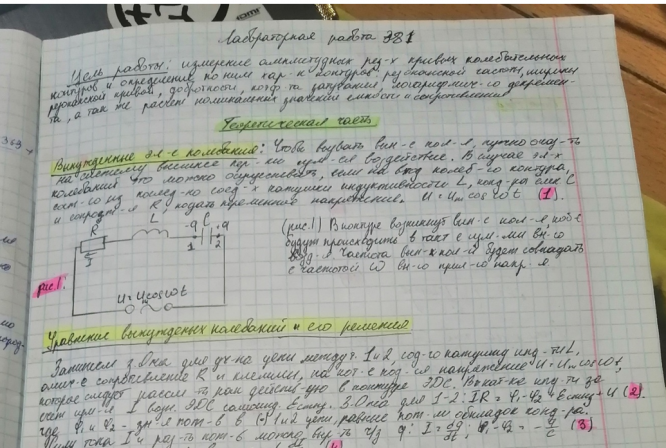 Лабораторная работа 381
Цель работы: измерение амплитудных рез-х кривых колебательных
контуров и определение по ним хар-к контуров: резонансной частоты, ширины
резонансной кривой, добротности, коэф-та затухания, логарифмич-го декремен-
та, а так же расчёт номинальных значений ёмкости и сопротивления
Теоретическая часть
Вынужденные эл-е колебания: Чтобы вызвать вын-е кол-я, нужно оказ-ть
на систему внешнее пер-ое воздействие. В случае эл-х
колебаний это можно осуществить, если на вход колеб-го контура,
сост-го из послед-но соед-х катушки индуктивности L, конд-ра C
и сопрот-я R, подать переменное напряжение. U = Um cos ωt (1).
R L C
-q +q
1 2
I
рис.1.
U = Um cos ωt
(рис.1) В контуре возникнут вын-е кол-я, кот-е
будут происходить в такт с вн-го
Частота вын-х кол-й будет совпадать
с частотой ω вн-го напр-я
Уравнение вынужденных колебаний и его решения
Запишем з. Ома для уч-ка цепи между 1 и 2, сод-го катушку инд-ти L,
сопротивление R и клеммы, на кот-е под-ся напряжение U = Um cos ωt,
которое следует рассм-ть как действ-ую в контуре ЭДС. В кат-ке инд-ти за
счёт I возн. ЭДС самоинд. З. Ома для 1-2: IR = φ1 - φ2 + + U (2)
где φ1 и φ2 - зн-я пот-в в (·) 1 и 2 цепи, равные пот-м обкладок конд-ра.
тока I и раз-ть пот-в можно через q: I = dq/dt; φ1 - φ2 = -q/C (3)